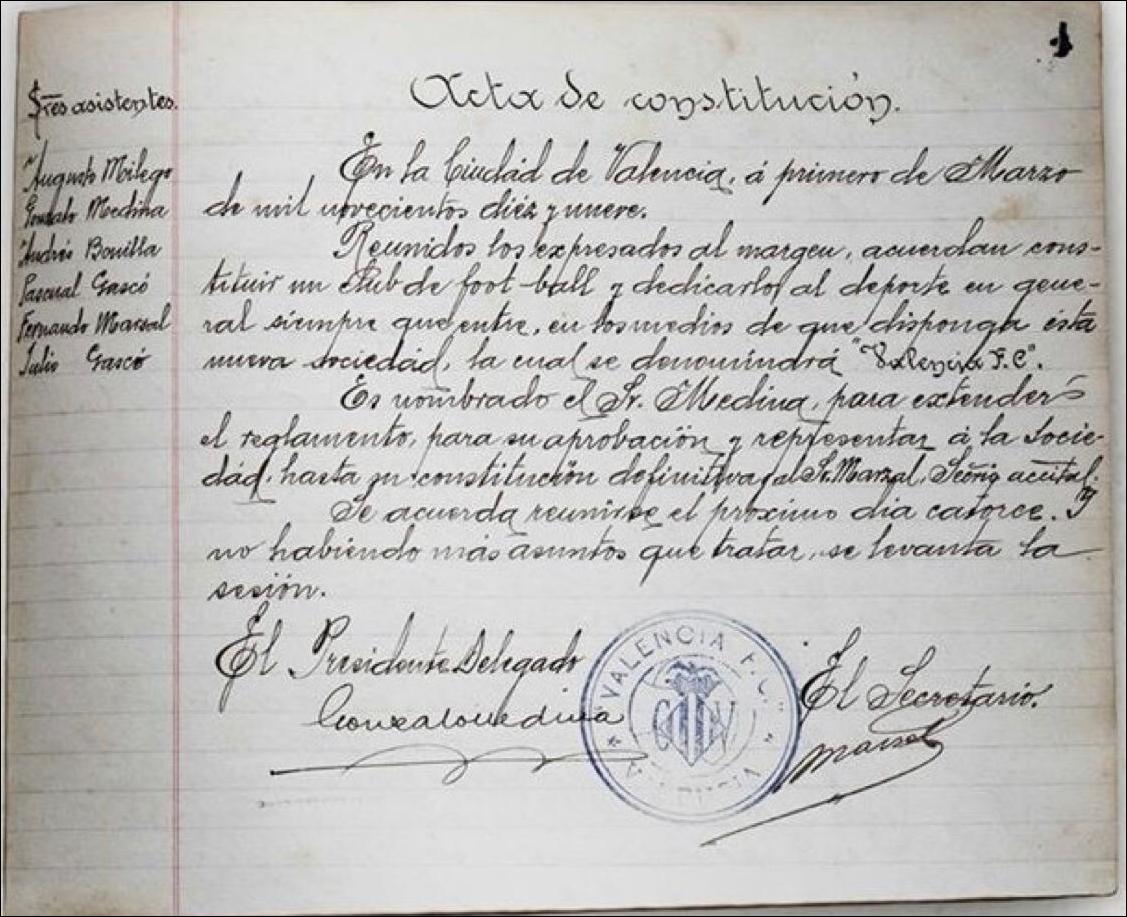 1
Sres asistentes.
Augusto Milego
Gonzalo Medina
Andrés Bonilla
Pascual Gascó
Fernando Marzal
Julio Gascó
Acta de constitución.
En la Ciudád de Valencia, á primero de Marzo
de mil novecientos diéz y nueve.
Reunidos los expresados al margen, acuerdan cons-
tituir un Club de foot-ball y dedicarlos al deporte en gene-
ral siempre que entre, en los medios de que disponga ésta
nueva sociedád, la cual se denomindrá "Valencia F.C".
Es nombrado el Sr. Medina, para extender
el reglamento, para su aprobación y representar á la Socie-
dád, hasta su constitución definitiva y al Sr. Marzal,
Se acuerda reunirse el próximo dia catorce. Y
no habiendo más asuntos que tratar, se levanta la
sesión.
El Presidente Delegado
Gonzalo Medina
VALENCIA F. C.
VALENCIA
El Secretario.
Marzal